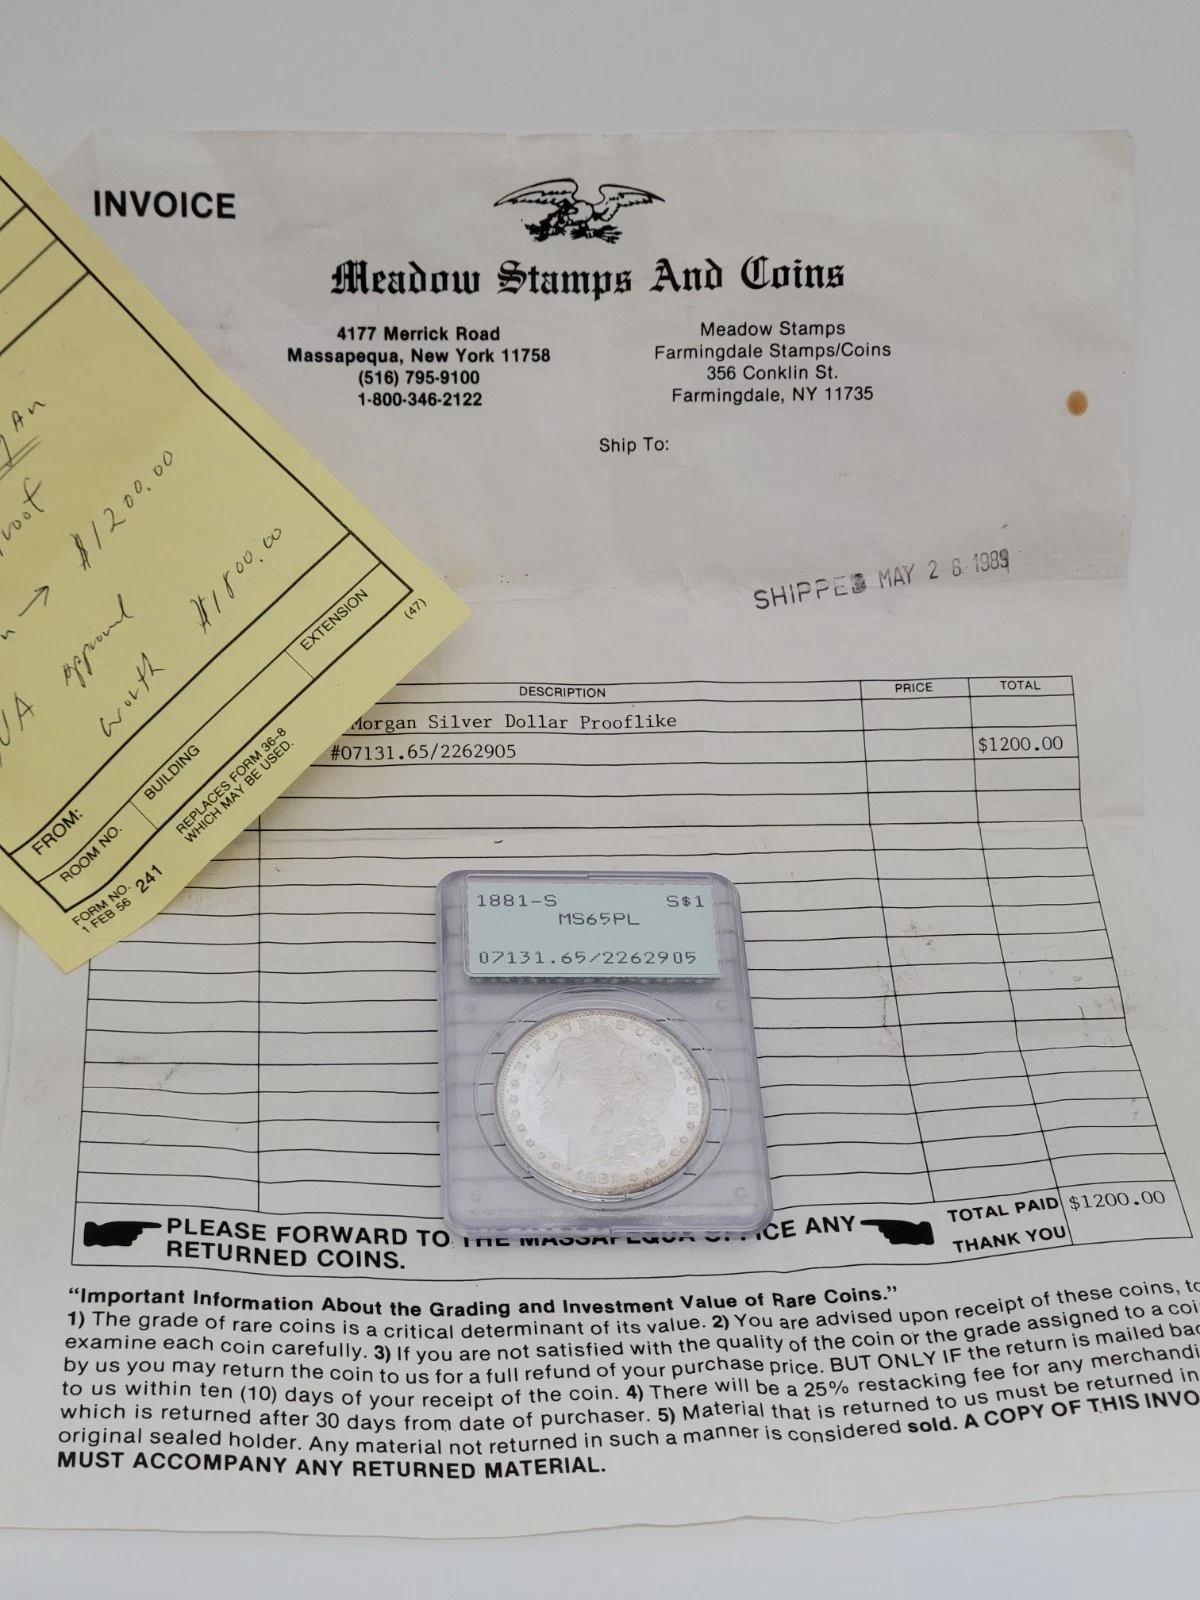 INVOICE
Meadow Stamps And Coins
4177 Merrick Road
Massapequa, New York 11758
(516) 795-9100
1-800-346-2122
Meadow Stamps
Farmingdale Stamps/Coins
356 Conklin St.
Farmingdale, NY 11735
Ship To:
SHIPPED MAY 26 1989
$1200.00
approval
worth $1800.00
FROM:
ROOM NO.
BUILDING
EXTENSION
FORM NO. 241
1 FEB 56
REPLACES FORM 36-8
WHICH MAY BE USED.
(47)
DESCRIPTION PRICE TOTAL
Morgan Silver Dollar Prooflike
#07131.65/2262905 $1200.00
1881-S S$1
MS65PL
07131.65/2262905
E · PLURIBUS · UNUM
1881
PLEASE FORWARD TO THE MASSAPEQUA OFFICE ANY
RETURNED COINS.
TOTAL PAID $1200.00
THANK YOU
"Important Information About the Grading and Investment Value of Rare Coins."
1) The grade of rare coins is a critical determinant of its value. 2) You are advised upon receipt of these coins, to
examine each coin carefully. 3) If you are not satisfied with the quality of the coin or the grade assigned to a coi
by us you may return the coin to us for a full refund of your purchase price. BUT ONLY IF the return is mailed bac
to us within ten (10) days of your receipt of the coin. 4) There will be a 25% restacking fee for any merchandi
which is returned after 30 days from date of purchaser. 5) Material that is returned to us must be returned in
original sealed holder. Any material not returned in such a manner is considered sold. A COPY OF THIS INVO
MUST ACCOMPANY ANY RETURNED MATERIAL.